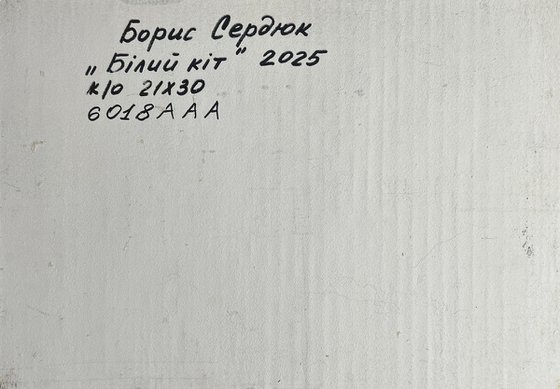 Борис Сердюк
„Білий кіт" 2025
к/о 21x30
6018ААА